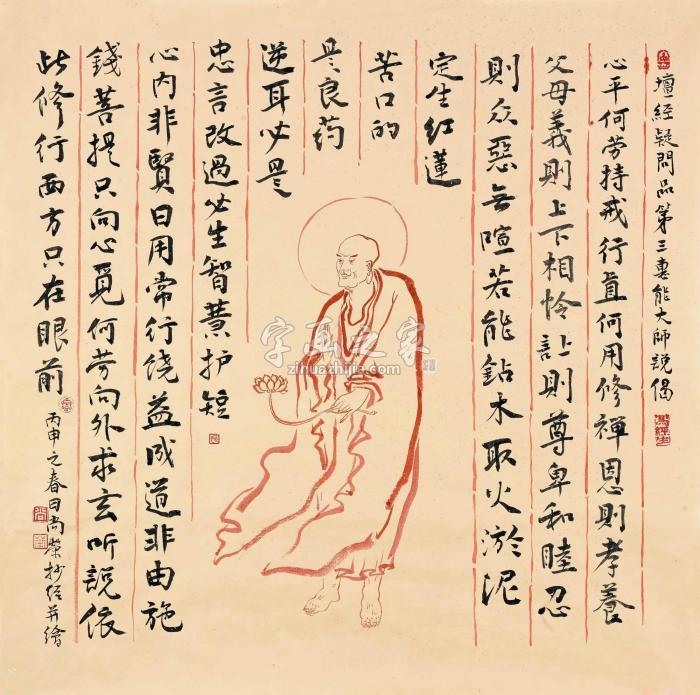 壇经疑問品第三惠能大師說偈
心平何劳持戒行直何用修禅恩則孝養
父母義則上下相怜让則尊卑和睦忍
則众惡无喧若能鉆木取火淤泥
定生红蓮
苦口的
是良药
逆耳必是
忠言改過必生智慧护短
心内非賢日用常行饶益成道非由施
錢菩提只向心覓何劳向外求玄听說依
此修行西方只在眼前
丙申之春日尚榮抄经并繪
字画之家
zihuazhijia.com